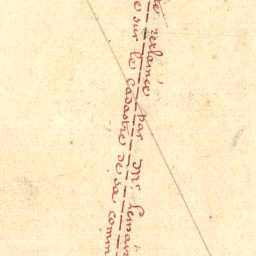 réclamée par Mr Lemair
sur le cadastre de sa comm